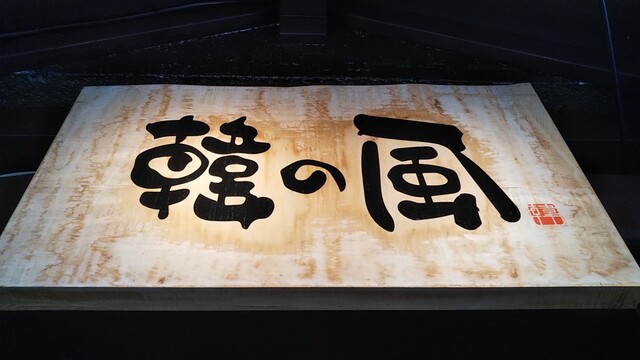 韓の風